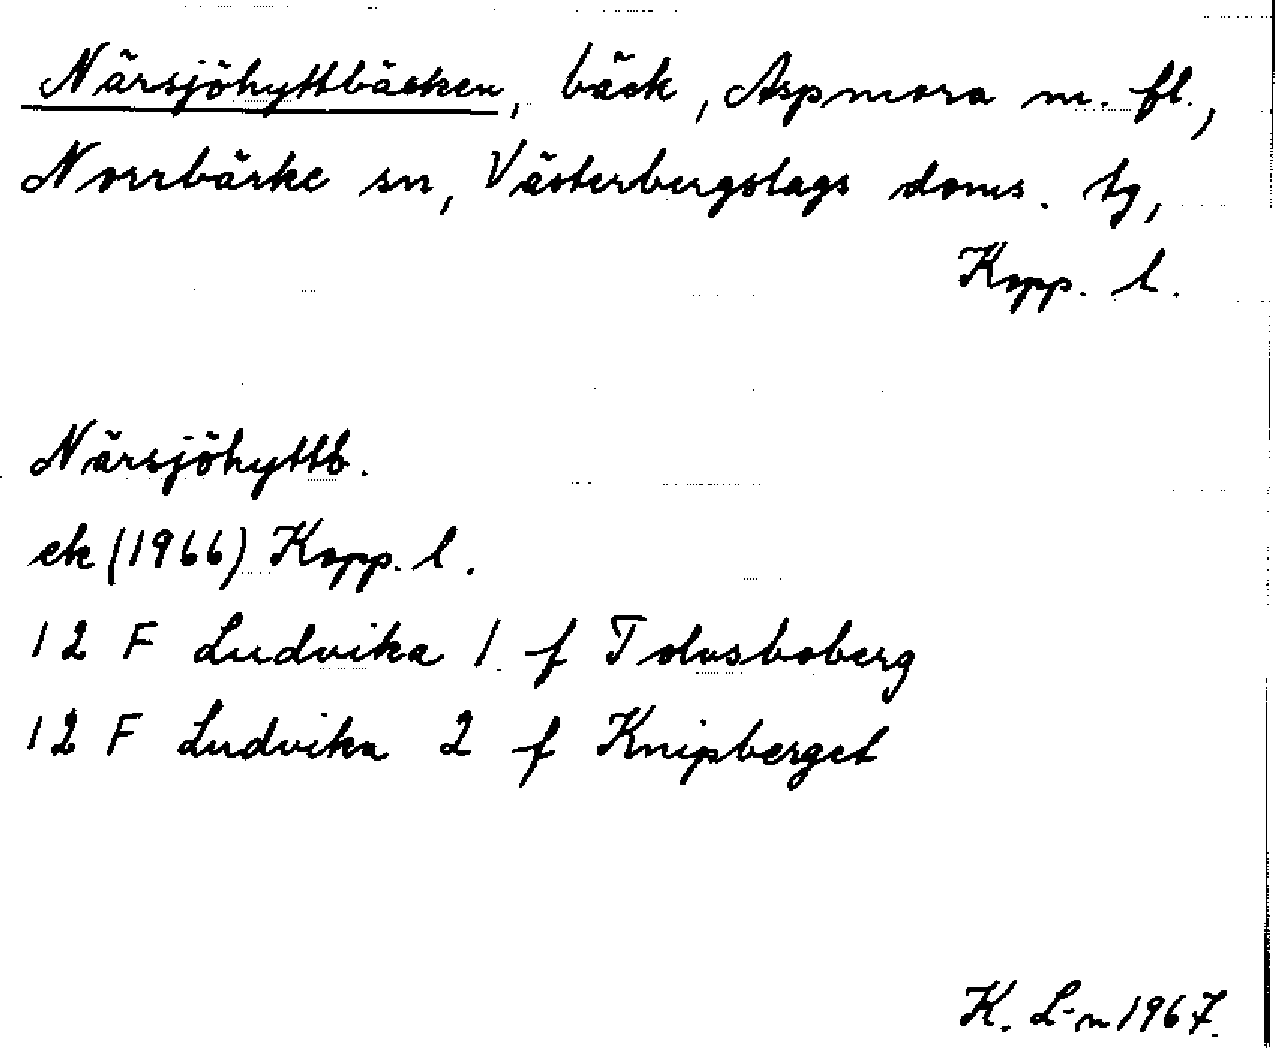 Närsjöhyttbäcken, bäck, Aspmora m. fl.,
Norrbärke sn, Västerbergslags doms. tg,
Kopp. l.
Närsjöhyttb.
ek (1966) Kopp. l.
12 F Ludvika 1 f Tolvsboberg
12 F Ludvika 2 f Knipberget
K. L-n 1967.